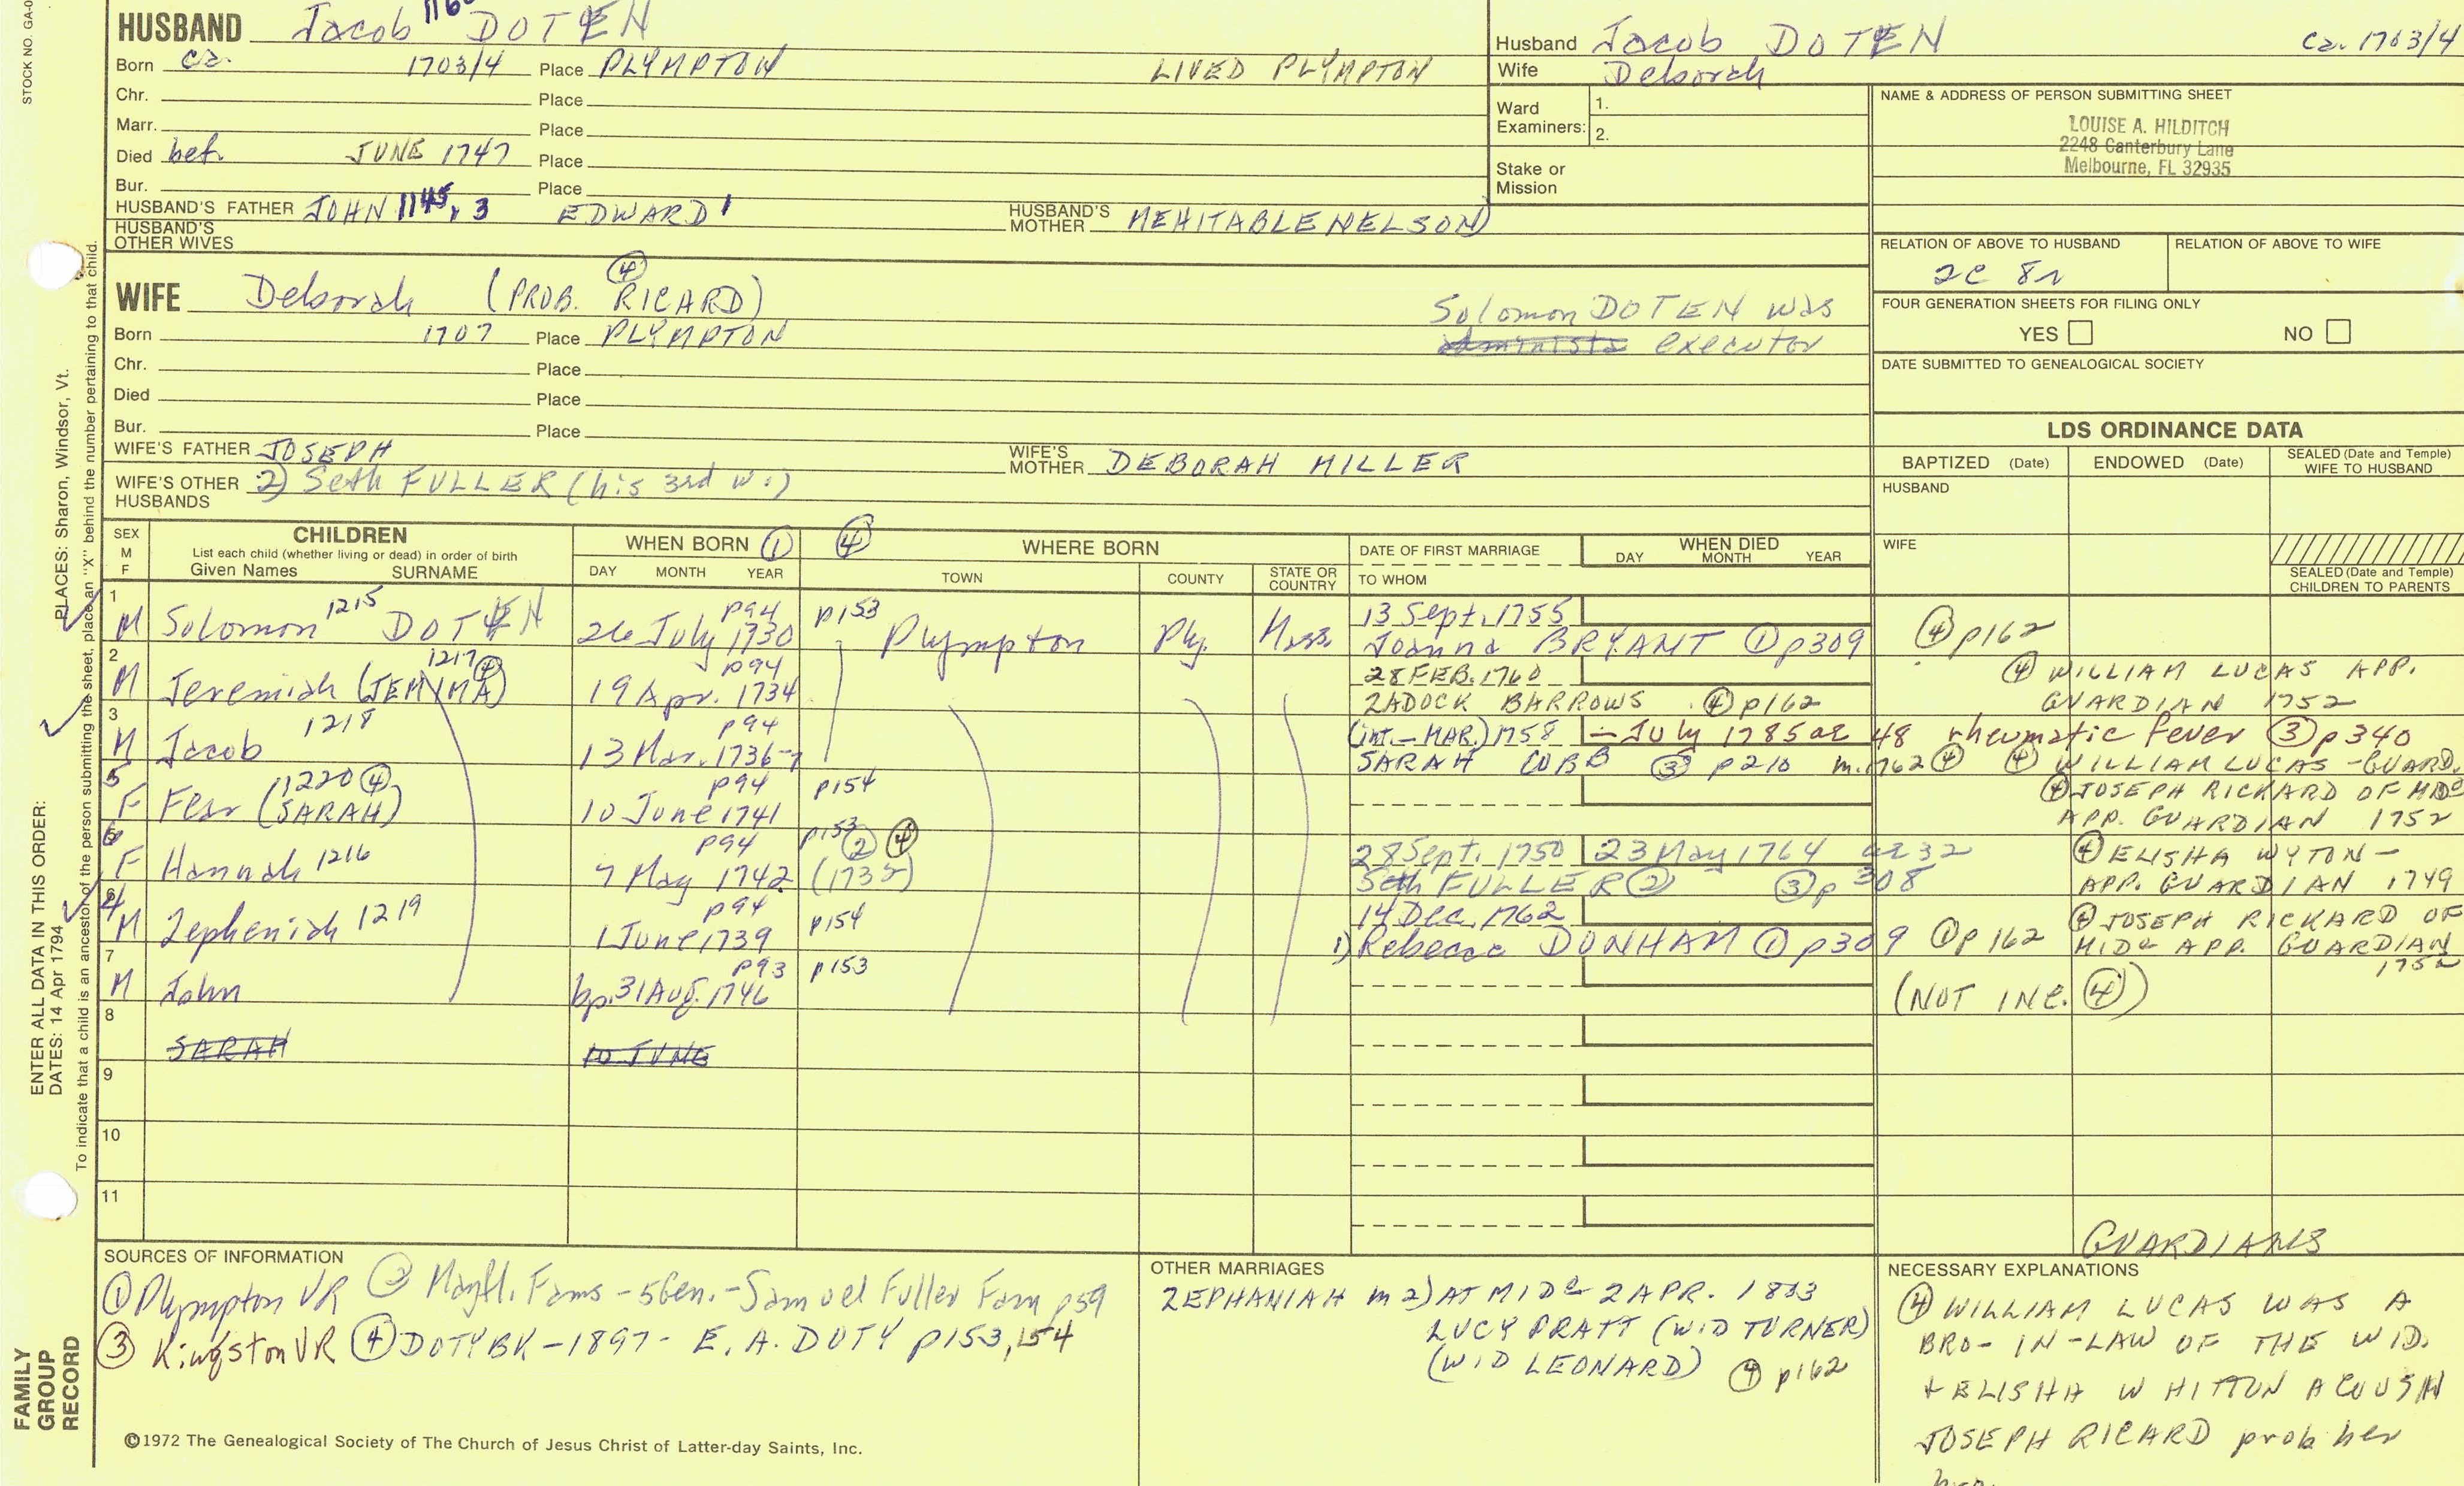 STOCK NO. GA-0
HUSBAND Jacob DOTEN
Born ca. 1703/4 Place PLYMPTON LIVED PLYMPTON
Chr. Place
Marr. Place
Died bef. JUNE 1747 Place
Bur. Place
HUSBAND'S FATHER JOHN 1145, 3 EDWARD 1 HUSBAND'S MOTHER MEHITABLE NELSON
HUSBAND'S OTHER WIVES
Husband Jacob DOTEN ca. 1703/4
Wife Deborah
Ward Examiners: 1.
2.
Stake or Mission
NAME & ADDRESS OF PERSON SUBMITTING SHEET
LOUISE A. HILDITCH
2248 Canterbury Lane
Melbourne, FL 32935
RELATION OF ABOVE TO HUSBAND RELATION OF ABOVE TO WIFE
2C 8r
FOUR GENERATION SHEETS FOR FILING ONLY
YES NO
DATE SUBMITTED TO GENEALOGICAL SOCIETY
WIFE Deborah (PROB. RICARD) ④
Solomon DOTEN was
executor
Born 1707 Place PLYMPTON
Chr. Place
Died Place
Bur. Place
WIFE'S FATHER JOSEPH WIFE'S MOTHER DEBORAH MILLER
WIFE'S OTHER HUSBANDS 2) Seth FULLER (his 3rd w.)
LDS ORDINANCE DATA
BAPTIZED (Date) ENDOWED (Date) SEALED (Date and Temple) WIFE TO HUSBAND
HUSBAND
WIFE
SEALED (Date and Temple) CHILDREN TO PARENTS
SEX M F
CHILDREN
List each child (whether living or dead) in order of birth
Given Names SURNAME
WHEN BORN ①
DAY MONTH YEAR
④ WHERE BORN
TOWN COUNTY STATE OR COUNTRY
DATE OF FIRST MARRIAGE
TO WHOM
WHEN DIED
DAY MONTH YEAR
1 M Solomon 1215 DOTEN 26 July 1730 p94 p153 Plympton Ply. Mass 13 Sept. 1755
Joanna BRYANT ① p309 ④ p162
2 M Jeremiah (JEMIMA) 1217 ④ 19 Apr. 1734 p94 28 FEB. 1760
ZADOCK BARROWS ④ p162 ④ WILLIAM LUCAS APP.
GUARDIAN 1752
3 M Jacob 1218 13 Mar. 1736-7 p94 (int. - MAR.) 1758 - July 1785 ae 48 rheumatic fever ③ p340
SARAH COBB ③ p210 m. 1762 ④ ④ WILLIAM LUCAS - GUARD.
5 F Fear (SARAH) 1220 ④ 10 June 1741 p94 p154 ④ JOSEPH RICKARD OF MIDe
APP. GUARDIAN 1752
F Hannah 1216 7 May 1742 p94 p153 ② ④ (1732) 28 Sept. 1750 23 May 1764 ae 32
Seth FULLER ② ③ p 308 ④ ELISHA WYTON -
APP. GUARDIAN 1749
4 M Zepheniah 1219 1 June 1739 p94 p154 14 Dec. 1762
1) Rebecca DONHAM ① p309 ① p162 ④ JOSEPH RICKARD OF
MIDe APP. GUARDIAN
1752
7 M John bp. 31 Aug. 1746 p93 p153 (NOT INC. ④)
8 SARAH 10 JUNE
9
10
11
GUARDIANS
SOURCES OF INFORMATION
① Plympton VR ② Mayfl. Fams - 5Gen. - Samuel Fuller Fam p59
③ Kingston VR ④ DOTY BK - 1897 - E. A. DOTY p153, 154
©1972 The Genealogical Society of The Church of Jesus Christ of Latter-day Saints, Inc.
OTHER MARRIAGES
ZEPHANIAH m 2) AT MIDe 2 APR. 1803
LUCY PRATT (WID TURNER)
(WID LEONARD) ④ p162
NECESSARY EXPLANATIONS
④ WILLIAM LUCAS WAS A
BRO- IN-LAW OF THE WID.
+ ELISHA WHITTON A COUSIN
JOSEPH RICARD prob her
bro.
PLACES: Sharon, Windsor, Vt.
ENTER ALL DATA IN THIS ORDER:
DATES: 14 Apr 1794
To indicate that a child is an ancestor of the person submitting the sheet, place an "X" behind the number pertaining to that child.
FAMILY
GROUP
RECORD